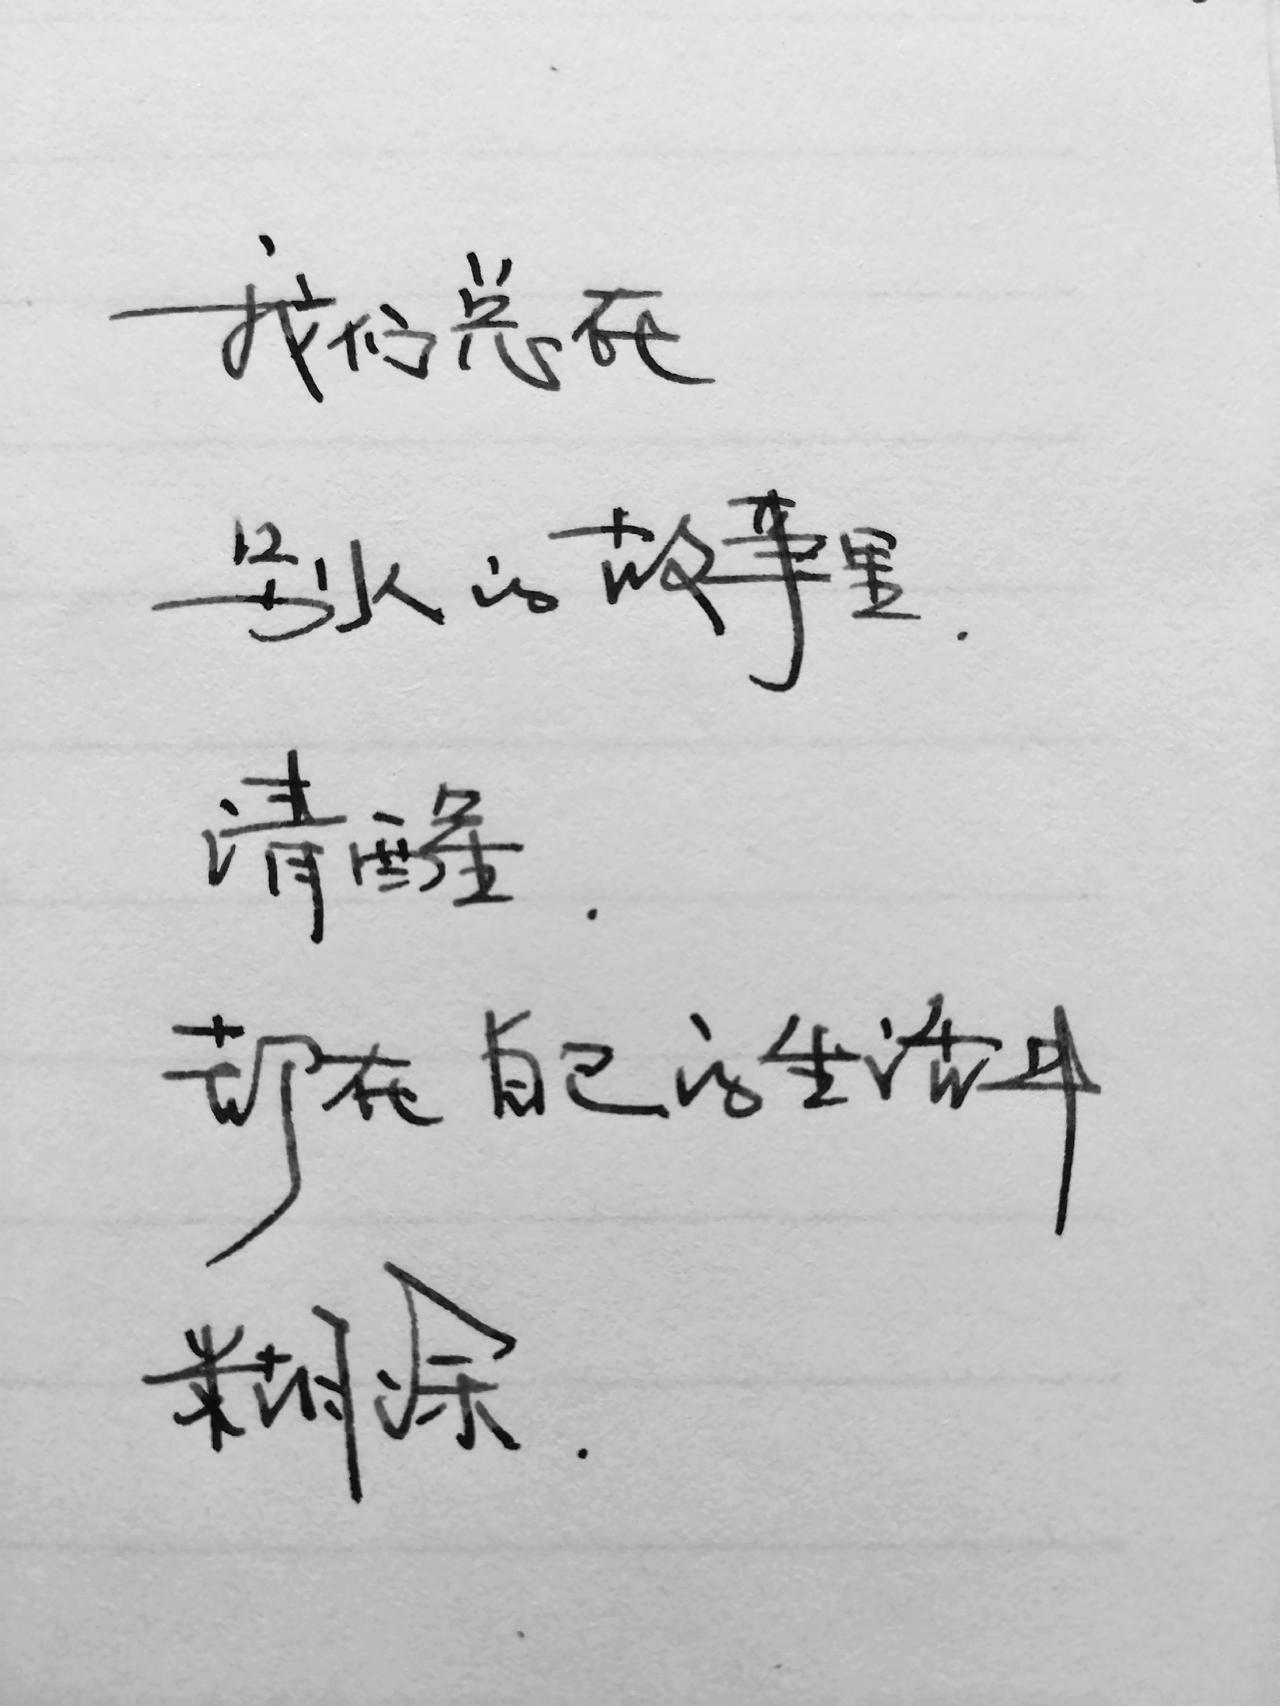 我们总在
别人的故事里.
清醒.
却在自己的生活中
糊涂.